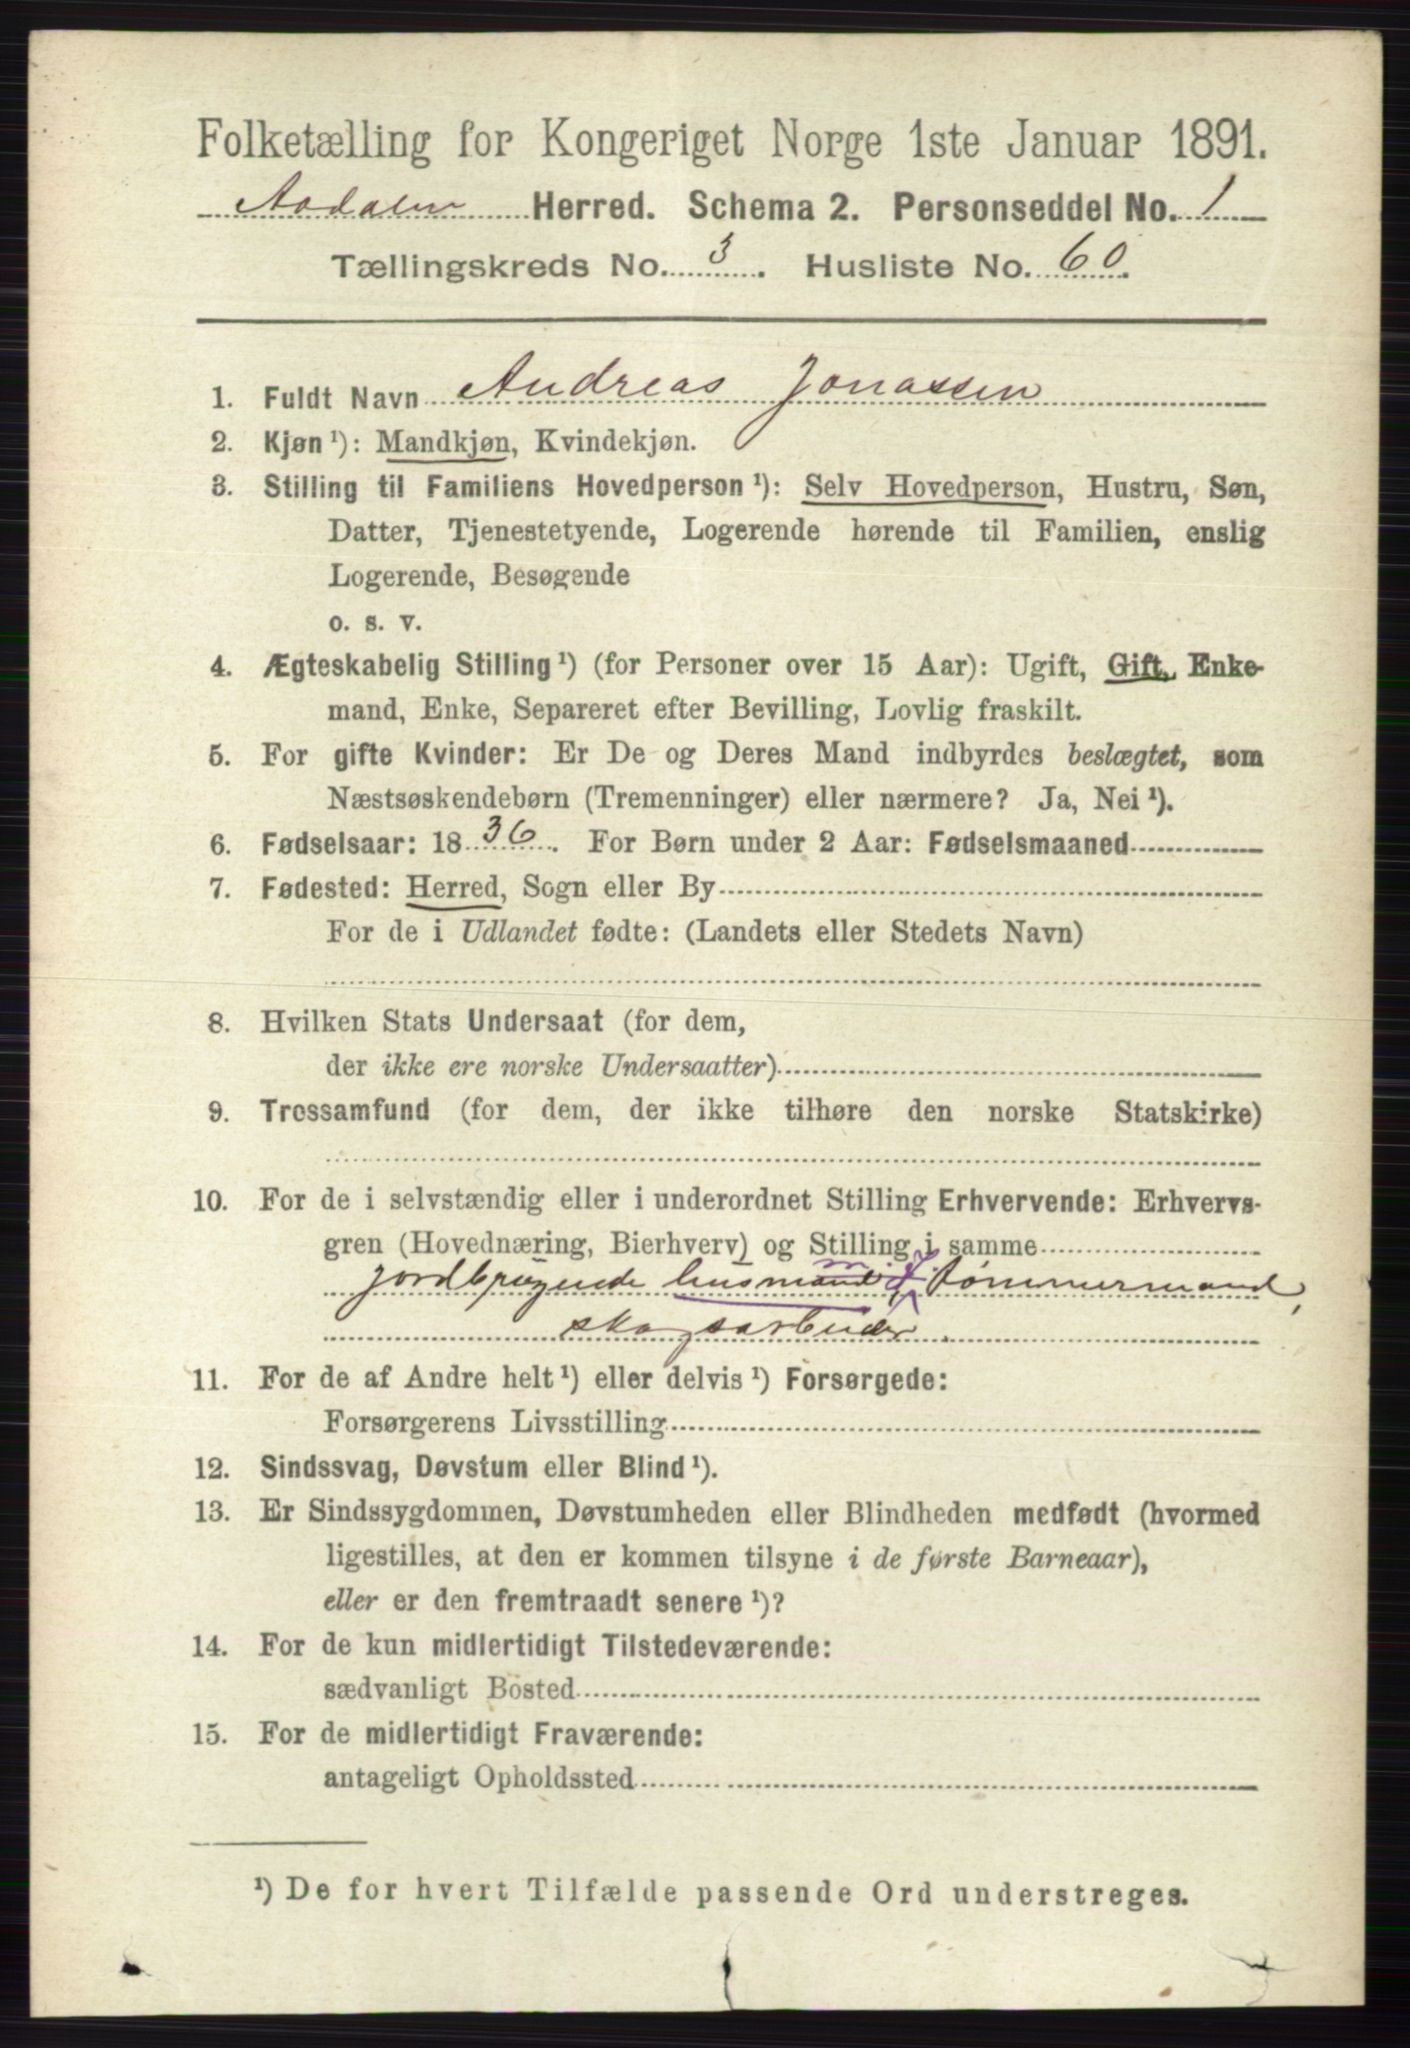 Folketælling for Kongeriget Norge 1ste Januar 1891.
Aadalen Herred. Schema 2. Personseddel No. 1
Tællingskreds No. 3. Husliste No. 60.
1. Fuldt Navn Andreas Jonassen
2. Kjøn ¹): Mandkjøn, Kvindekjøn.
3. Stilling til Familiens Hovedperson ¹): Selv Hovedperson, Hustru, Søn,
Datter, Tjenestetyende, Logerende hørende til Familien, enslig
Logerende, Besøgende
o. s. v.
4. Ægteskabelig Stilling ¹) (for Personer over 15 Aar): Ugift, Gift, Enke-
mand, Enke, Separeret efter Bevilling, Lovlig fraskilt.
5. For gifte Kvinder: Er De og Deres Mand indbyrdes beslægtet, som
Næstsøskendebørn (Tremenninger) eller nærmere? Ja, Nei ¹).
6. Fødselsaar: 1836. For Børn under 2 Aar: Fødselsmaaned
7. Fødested: Herred, Sogn eller By
For de i Udlandet fødte: (Landets eller Stedets Navn)
8. Hvilken Stats Undersaat (for dem,
der ikke ere norske Undersaatter)
9. Trossamfund (for dem, der ikke tilhøre den norske Statskirke)
10. For de i selvstændig eller i underordnet Stilling Erhvervende: Erhvervs-
gren (Hovednæring, Bierhverv) og Stilling i samme
jordbrugende husmand m. J. tømmermand,
skogsarbeider.
11. For de af Andre helt ¹) eller delvis ¹) Forsørgede:
Forsørgerens Livsstilling
12. Sindssvag, Døvstum eller Blind ¹).
13. Er Sindssygdommen, Døvstumheden eller Blindheden medfødt (hvormed
ligestilles, at den er kommen tilsyne i de første Barneaar),
eller er den fremtraadt senere ¹)?
14. For de kun midlertidigt Tilstedeværende:
sædvanligt Bosted
15. For de midlertidigt Fraværende:
antageligt Opholdssted
¹) De for hvert Tilfælde passende Ord understreges.